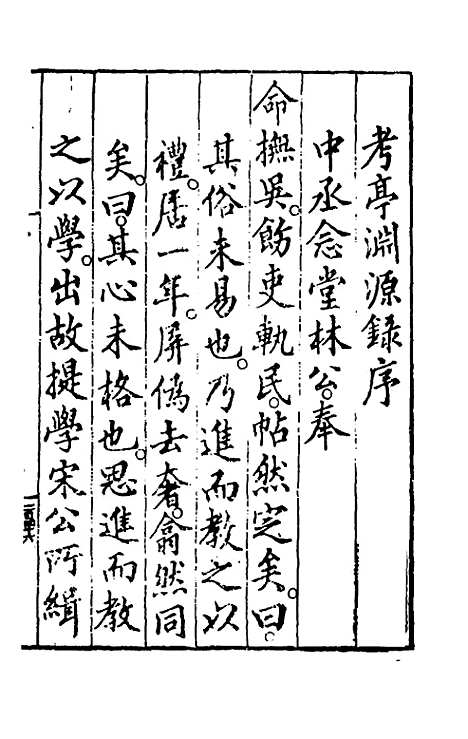 考亭淵源錄序
中丞念堂林公奉
命撫吳飭吏軌民帖然定矣曰
其俗未易也乃進而教之以
禮居一年屏偽去奢翕然同
矣曰其心未格也思進而教
之以學出故提學宋公所緝